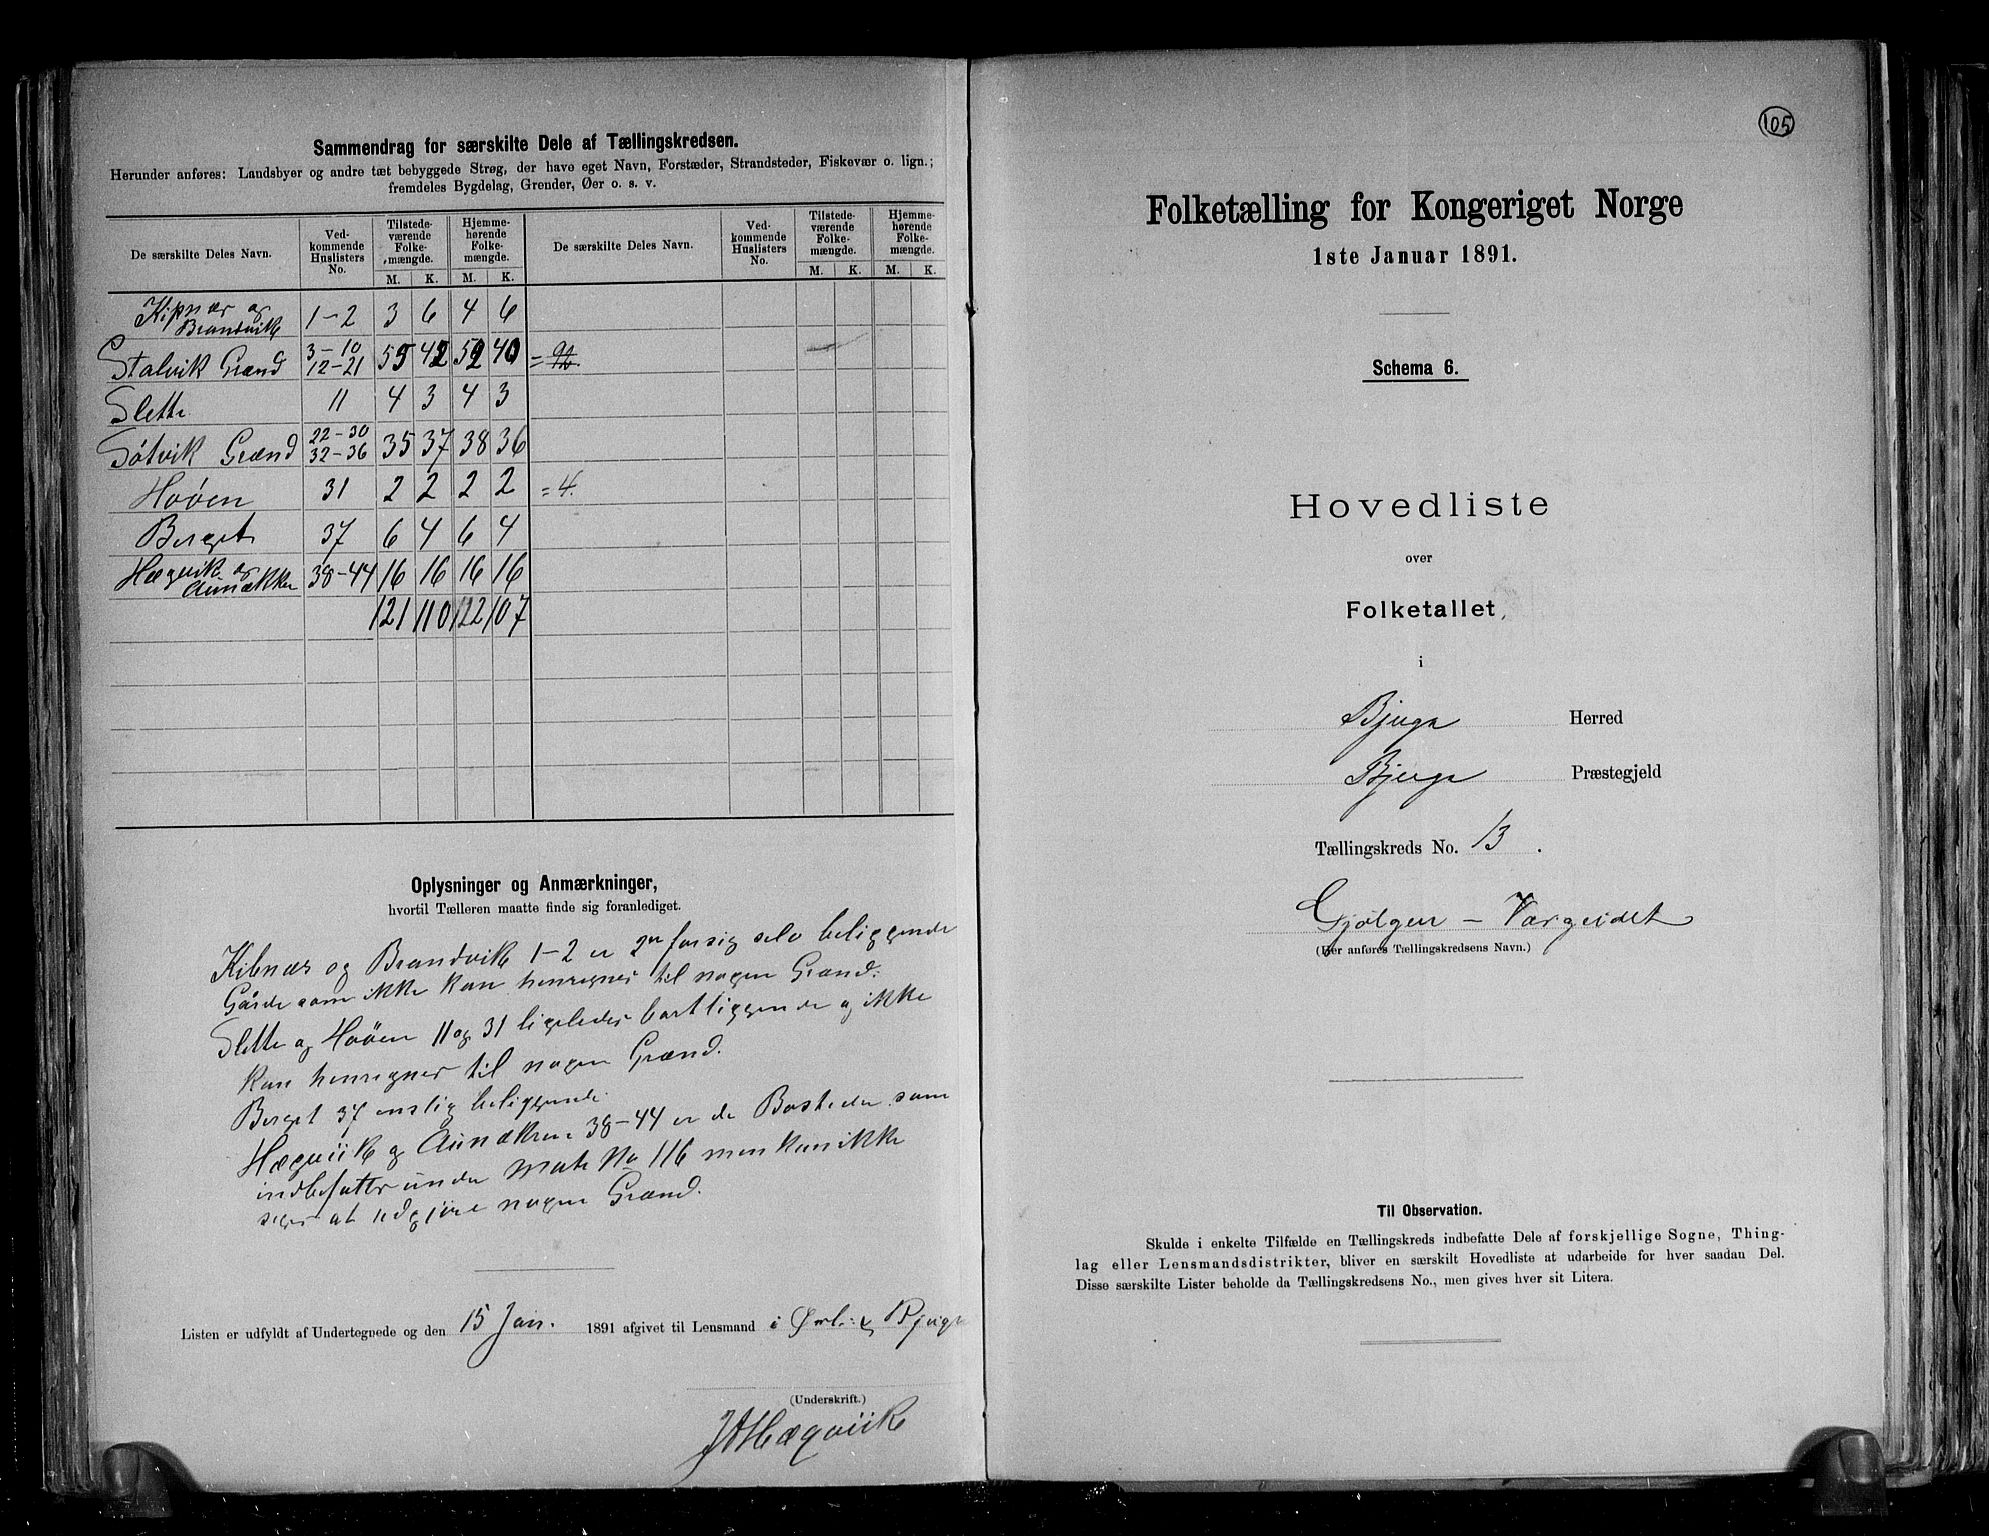 Sammendrag for særskilte Dele af Tællingskredsen.
Herunder anføres: Landsbyer og andre tæt bebyggede Strøg, der have eget Navn, Forstæder, Strandsteder, Fiskevær o. lign.;
fremdeles Bygdelag, Grender, Øer o. s. v.
De særskilte Deles Navn. Vedkommende Huslisters No. Tilstedeværende Folkemængde. M. K. Hjemmehørende Folkemængde. M. K. De særskilte Deles Navn. Vedkommende Huslisters No. Tilstedeværende Folkemængde. M. K. Hjemmehørende Folkemængde. M. K.
Kipnæs og Brandvik 1-2 3 6 4 6
Stalvik Grænd 3-10 12-21 55 42 52 40 = 92.
Slette 11 4 3 4 3
Søtvik Grænd 22-30 32-36 35 37 38 36
Hoøen 31 2 2 2 2 = 4.
Berget 37 6 4 6 4
Hægvik og Aunækker 38-44 16 16 16 16
121 110 122 107
Oplysninger og Anmærkninger,
hvortil Tælleren maatte finde sig foranlediget.
Kibnæs og Brandvik 1-2 er 2n for sig selv beliggende
Gårde som ikke kan henregnes til nogen Grænd.
Slette og Hoøen 11 og 31 ligeledes bortliggende og ikke
kan henregnes til nogen Grænd.
Berget 37 enslig beliggende.
Hægviik og Aunækren 38-44 er de Bosteder som
indbefattes under Matr No 116 men kan ikke
siges at udgjøre nogen Grænd.
Listen er udfyldt af Undertegnede og den 15 Jan. 1891 afgivet til Lensmand i Ørl: & Bjugn
(Underskrift.)
JAHægviik
105
Folketælling for Kongeriget Norge
1ste Januar 1891.
Schema 6.
Hovedliste
over
Folketallet
i
Bjugn Herred
Bjugn Præstegjeld
Tællingskreds No. 13.
Gjølgen - Vargeidet
(Her anføres Tællingskredsens Navn.)
Til Observation.
Skulde i enkelte Tilfælde en Tællingskreds indbefatte Dele af forskjellige Sogne, Thing-
lag eller Lensmandsdistrikter, bliver en særskilt Hovedliste at udarbeide for hver saadan Del.
Disse særskilte Lister beholde da Tællingskredsens No., men gives hver sit Litera.